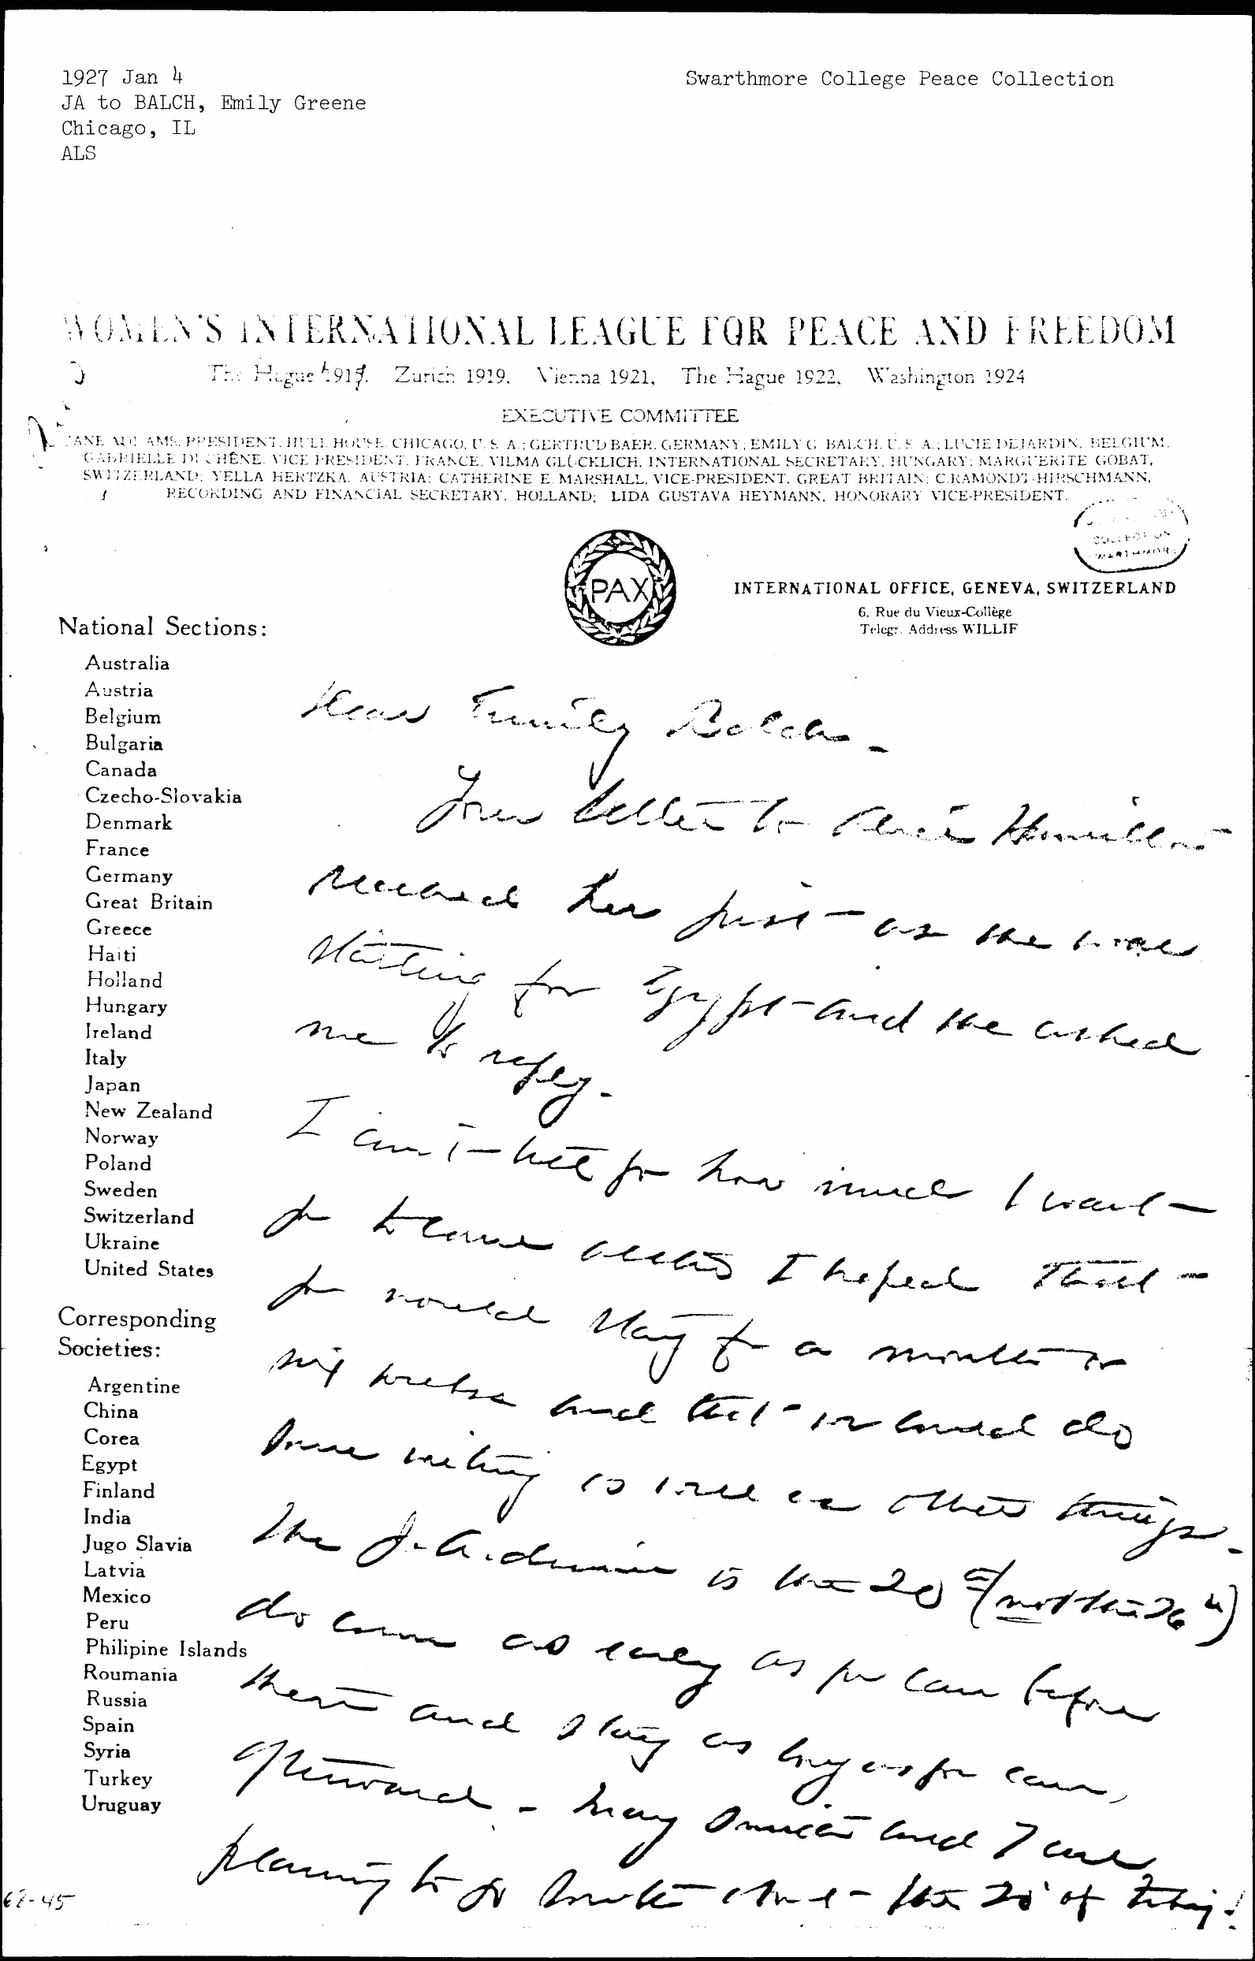 1927 Jan 4
JA to BALCH, Emily Greene
Chicago, IL
ALS
Swarthmore College Peace Collection
WOMEN'S INTERNATIONAL LEAGUE FOR PEACE AND FREEDOM
The Hague 1915. Zurich 1919. Vienna 1921, The Hague 1922, Washington 1924
EXECUTIVE COMMITTEE
JANE ADDAMS, PRESIDENT, HULL HOUSE, CHICAGO, U. S. A.; GERTRUD BAER, GERMANY; EMILY G. BALCH, U. S. A.; LUCIE DEJARDIN, BELGIUM,
GABRIELLE DUCHÊNE, VICE PRESIDENT, FRANCE, VILMA GLÜCKLICH, INTERNATIONAL SECRETARY, HUNGARY; MARGUERITE GOBAT,
SWITZERLAND; YELLA HERTZKA, AUSTRIA; CATHERINE E. MARSHALL, VICE-PRESIDENT, GREAT BRITAIN; C. RAMONDT-HIRSCHMANN,
RECORDING AND FINANCIAL SECRETARY, HOLLAND; LIDA GUSTAVA HEYMANN, HONORARY VICE-PRESIDENT.
COLLECTION
SWARTHMORE
PAX
INTERNATIONAL OFFICE, GENEVA, SWITZERLAND
6, Rue du Vieux-Collège
Telegr. Address WILLIF
National Sections:
Australia
Austria
Belgium
Bulgaria
Canada
Czecho-Slovakia
Denmark
France
Germany
Great Britain
Greece
Haiti
Holland
Hungary
Ireland
Italy
Japan
New Zealand
Norway
Poland
Sweden
Switzerland
Ukraine
United States
Corresponding
Societies:
Argentine
China
Corea
Egypt
Finland
India
Jugo Slavia
Latvia
Mexico
Peru
Philipine Islands
Roumania
Russia
Spain
Syria
Turkey
Uruguay
Dear Emily Balch -
Your letter to Alice Hamilton
reached her just as she was
starting for Egypt and she asked
me to reply.
I can't tell you how much I want
you to come I hoped that
you would stay for a month or
six weeks and that we could do
some writing as well as other things.
The J. A. dinner is the 20th (not the 26th)
do come as early as you can before
then and stay as long as you can,
afterward - Mary Smith and I are
planning to go south about the 20 of Feb'y!
62-45